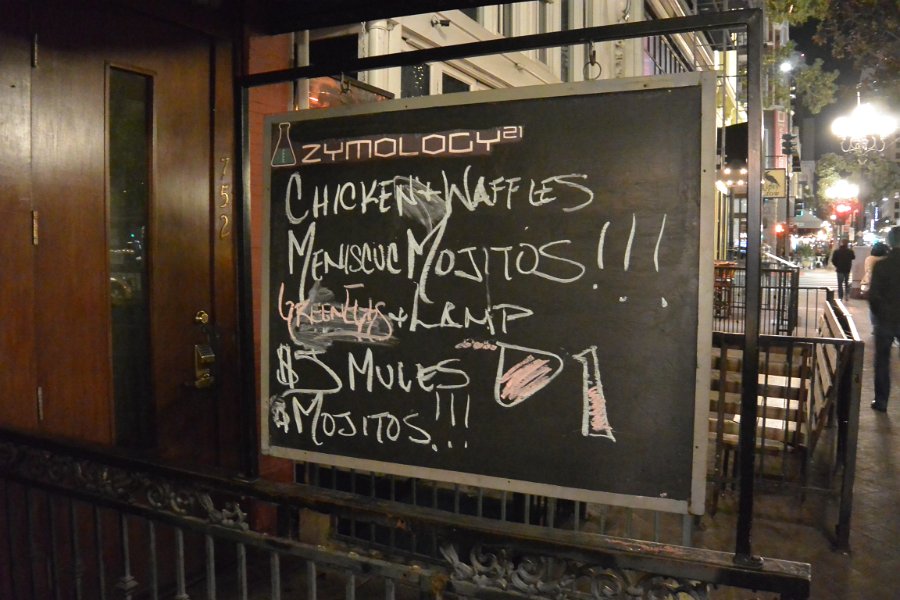 752
ZYMOLOGY21
CHICKEN + WAFFLES
MENISCUC MOJITOS!!!
GREEN EGGS + LAMP
$5 MULES
$ MOJITOS!!!